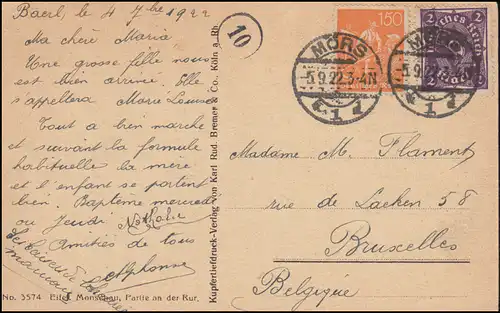 Baerl, le 4 7bre 1922
Ma chère Marie
Une grosse fille nous
est bien arrivée. Elle
s'appellera Marie Louise
Tout a bien marché
et suivant la formule
habituelle la mère
et l'enfant se portent
bien. Baptême mercredi
ou Jeudi. Nathalie
Amitiés de tous
Alphonse
No. 3574 Eifel Monschau, Partie an der Rur.
Kupfertiefdruck-Verlag von Karl Rud. Bremer & Co., Köln a. Rh.
10
150
2
MÖRS
5.9.22.3-4N
1 d
5.9
1 d
Madame M. Flament
rue de Laeken 58
Bruxelles
Belgique